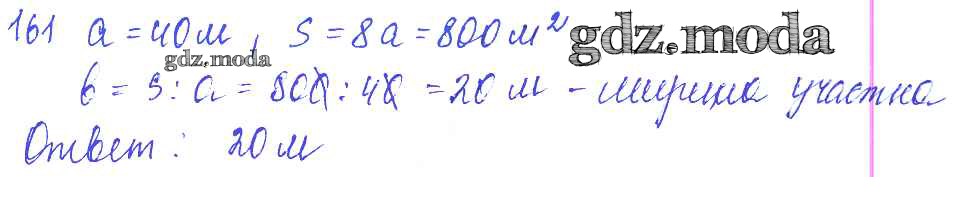 161 a = 40 м, S = 8a = 800 м² gdz.moda
gdz.moda
b = S : a = 800 : 40 = 20 м - ширина участка
Ответ: 20 м